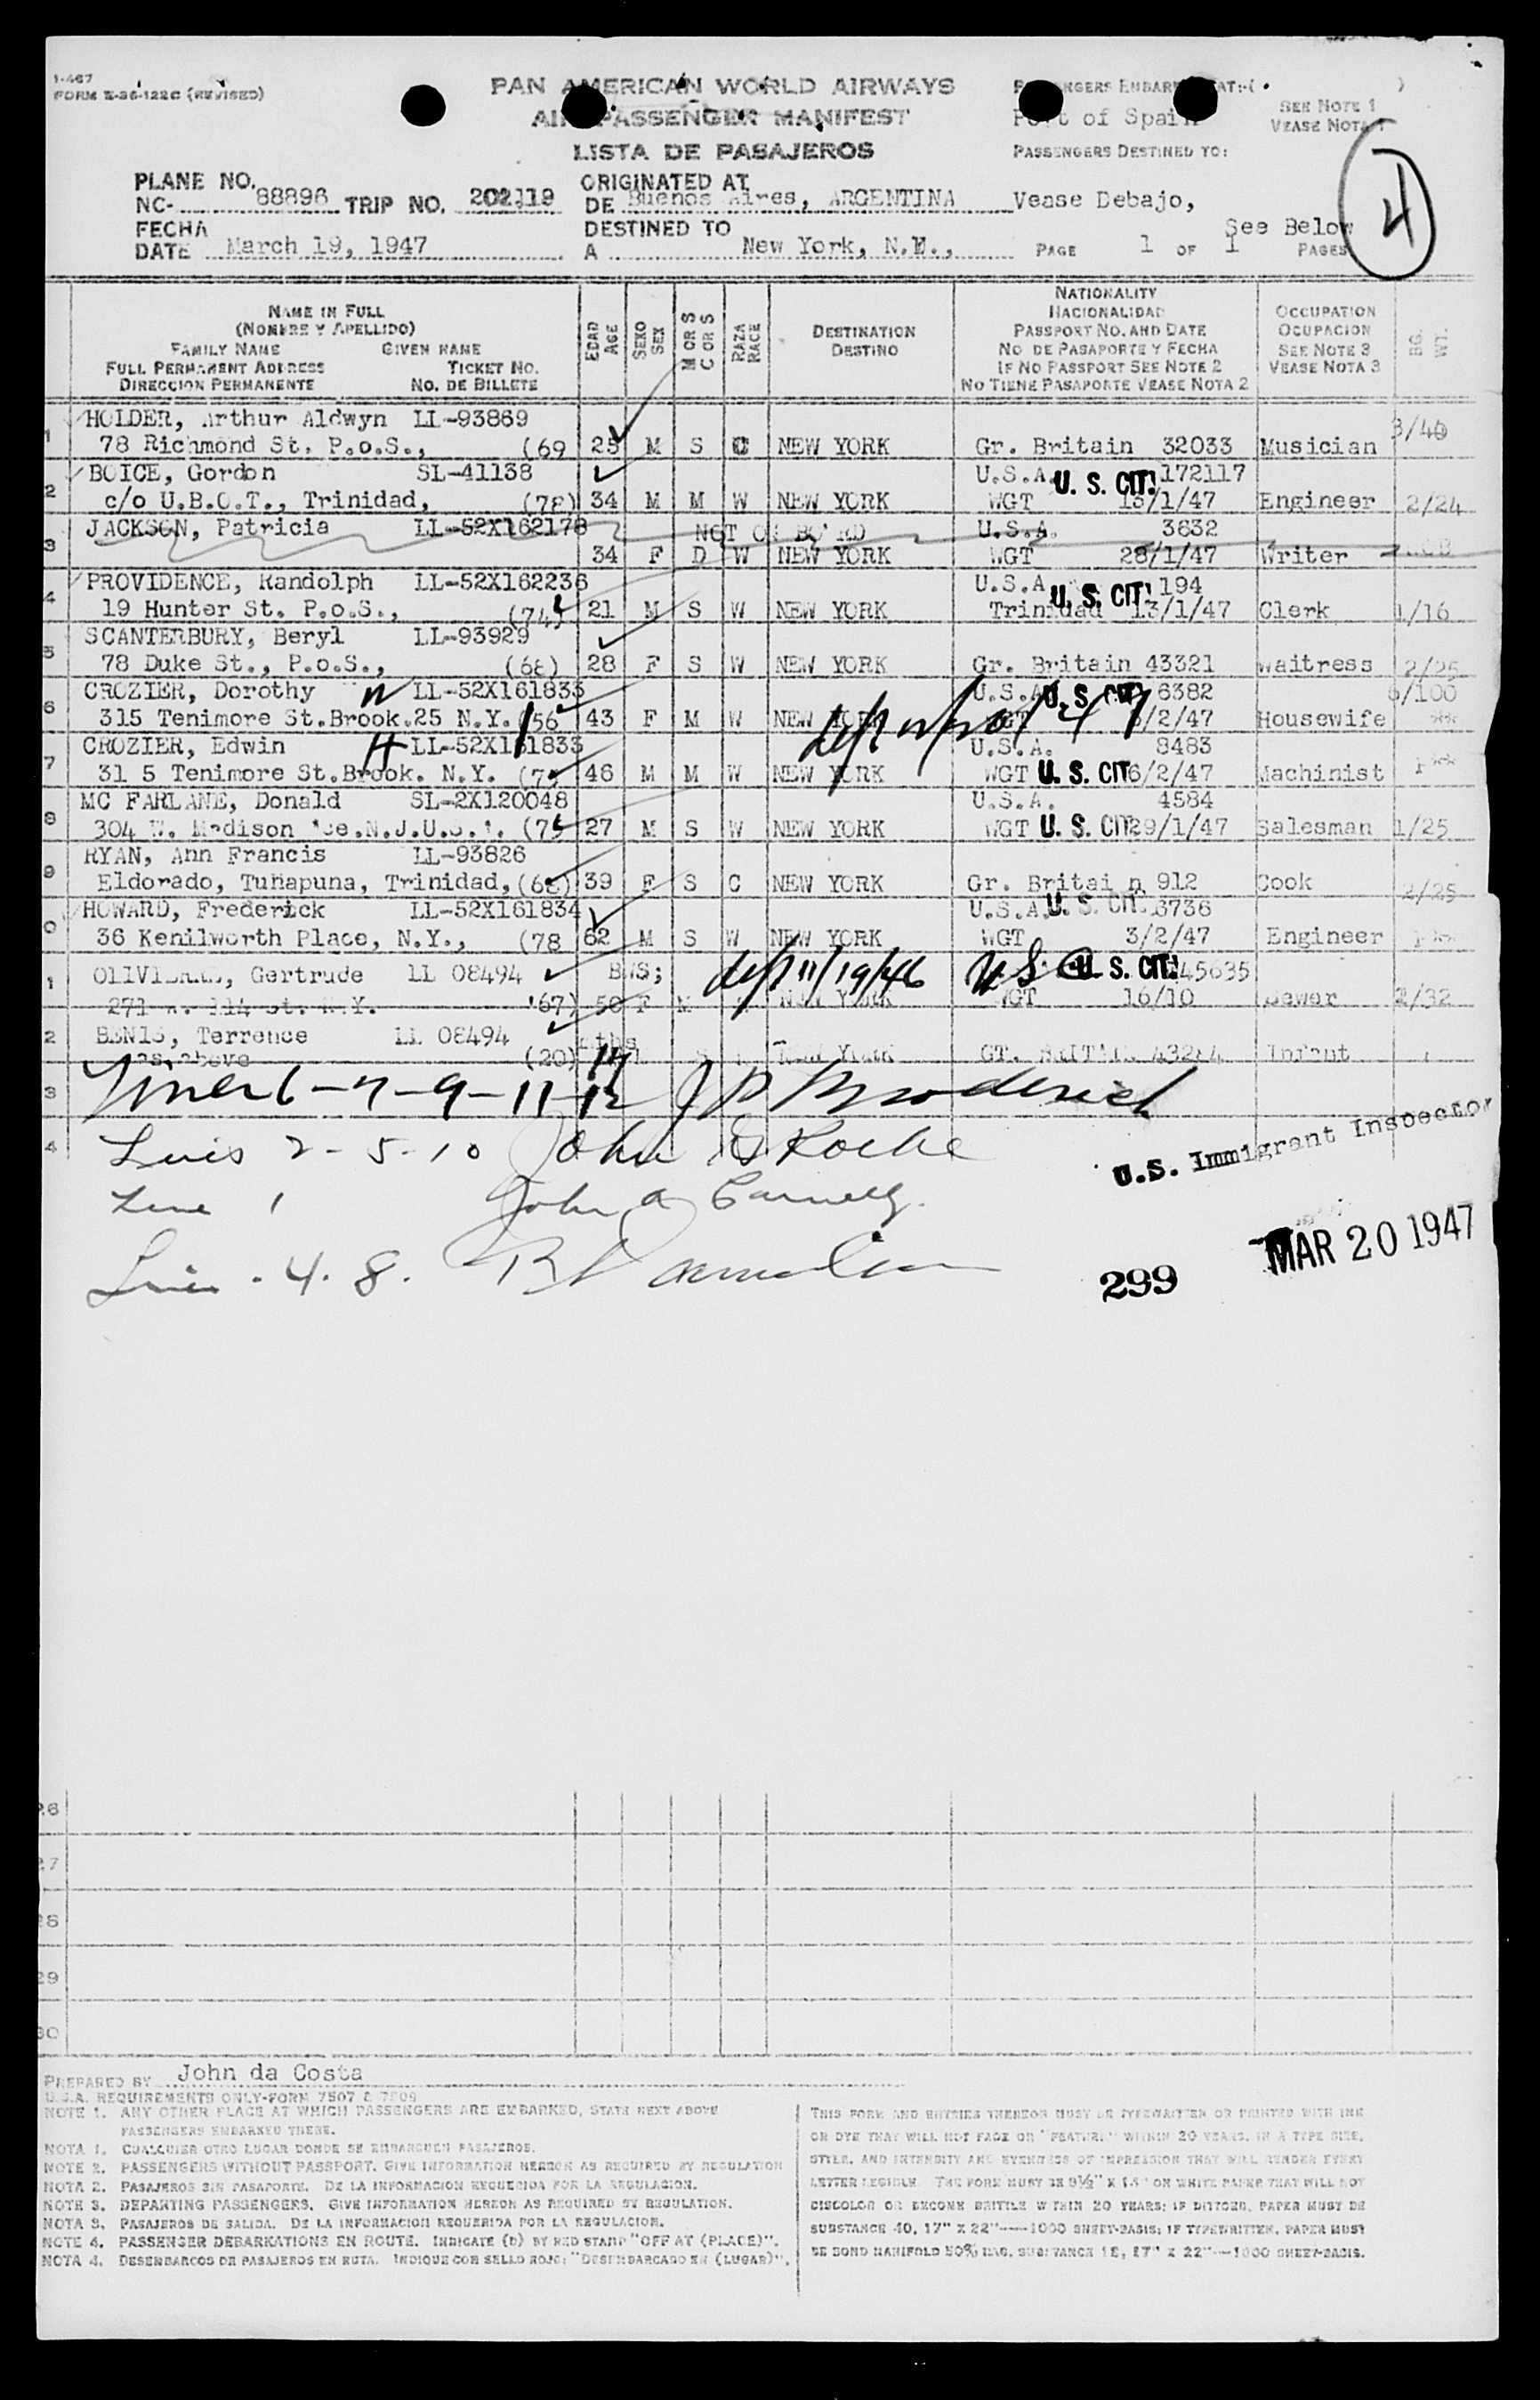 1-467
FORM E-36-122C (REVISED)
PAN AMERICAN WORLD AIRWAYS
AIR PASSENGER MANIFEST
LISTA DE PASAJEROS
PASSENGERS EMBARKED AT:-( )
Port of Spain
SEE NOTE 1
VEASE NOTA 1
PASSENGERS DESTINED TO:
4
PLANE NO.
NC- 88896 TRIP NO. 202119
ORIGINATED AT
DE Buenos Aires, ARGENTINA
Vease Debajo,
See Below
FECHA
DATE March 19, 1947
DESTINED TO
A New York, N.E.,
PAGE 1 OF 1 PAGES
NAME IN FULL
(NOMBRE Y APELLIDO)
FAMILY NAME GIVEN NAME
FULL PERMANENT ADDRESS TICKET NO.
DIRECCION PERMANENTE NO. DE BILLETE
EDAD
AGE
SEXO
SEX
M OR S
C OR S
RAZA
RACE
DESTINATION
DESTINO
NATIONALITY
NACIONALIDAD
PASSPORT NO. AND DATE
NO DE PASAPORTE Y FECHA
IF NO PASSPORT SEE NOTE 2
NO TIENE PASAPORTE VEASE NOTA 2
OCCUPATION
OCUPACION
SEE NOTE 3
VEASE NOTA 3
BG.
WT.
1 HOLDER, Arthur Aldwyn LL-93869
78 Richmond St. P.o.S., (69 25 M S C NEW YORK Gr. Britain 32033 Musician 3/40
2 BOICE, Gordon SL-41138 U.S.A. U. S. CIT. 172117
c/o U.B.O.T., Trinidad, (78) 34 M M W NEW YORK WGT 13/1/47 Engineer 2/24
3 JACKSON, Patricia LL-52X162178 NOT ON BOARD U.S.A. 3632
34 F D W NEW YORK WGT 28/1/47 Writer
4 PROVIDENCE, Randolph LL-52X162236 U.S.A. U. S. CIT. 194
19 Hunter St. P.o.S., (74) 21 M S W NEW YORK Trinidad 13/1/47 Clerk 1/16
5 SCANTERBURY, Beryl LL-93929
78 Duke St., P.o.S., (68) 28 F S W NEW YORK Gr. Britain 43321 Waitress 2/25
6 CROZIER, Dorothy W LL-52X161833 U.S.A. U. S. CIT. 6382 6/100
315 Tenimore St.Brook.25 N.Y. (56 43 F M W NEW YORK /2/47 Housewife **
7 CROZIER, Edwin H LL-52X161833 U.S.A. 8483
31 5 Tenimore St.Brook. N.Y. 46 M M W NEW YORK WGT U. S. CIT 6/2/47 Machinist
8 MC FARLANE, Donald SL-2X120048 U.S.A. 4584
304 W. Madison N.J.U.S.A. (75 27 M S W NEW YORK WGT U. S. CIT 29/1/47 Salesman 1/25
9 RYAN, Ann Francis LL-93826
Eldorado, Tunapuna, Trinidad, 39 F S C NEW YORK Gr. Britai n 912 Cook 2/25
0 HOWARD, Frederick LL-52X161834 U.S.A. U. S. CIT. 6736
36 Kenilworth Place, N.Y., (78 62 M S W NEW YORK WGT 3/2/47 Engineer
1 Gertrude LL 08494 dep 11/19/46 U S C U. S. CIT. 45635
St. N.Y. (67) 50 F M NEW YORK WGT 16/10 Sewer 2/32
2 Terrence LL 08494
as above (20) NEW YORK GT. BRITAIN Infant
3 Lines 6-7-9-11-12 J P Broderick
4 Lines 2-5-10 John Roche
Line 1 John A
Lines - 4 - 8.
U.S. Immigrant Inspector
299
MAR 20 1947
26
27
28
29
30
PREPARED BY John da Costa
U.S.A. REQUIREMENTS ONLY-FORM 7507 & 7509
NOTE 1. ANY OTHER PLACE AT WHICH PASSENGERS ARE EMBARKED, STATE NEXT ABOVE
PASSENGERS EMBARKED THERE.
NOTA 1. CUALQUIER OTRO LUGAR DONDE SE EMBARQUEN PASAJEROS.
NOTE 2. PASSENGERS WITHOUT PASSPORT. GIVE INFORMATION HEREON AS REQUIRED BY REGULATION
NOTA 2. PASAJEROS SIN PASAPORTE. DE LA INFORMACION REQUERIDA POR LA REGULACION.
NOTE 3. DEPARTING PASSENGERS. GIVE INFORMATION HEREON AS REQUIRED BY REGULATION.
NOTA 3. PASAJEROS DE SALIDA. DE LA INFORMACION REQUERIDA POR LA REGULACION.
NOTE 4. PASSENGER DEBARKATIONS EN ROUTE. INDICATE (D) BY RED STAMP "OFF AT (PLACE)".
NOTA 4. DESEMBARCOS DE PASAJEROS EN RUTA. INDIQUE CON SELLO ROJO: "DESEMBARCADO EN (LUGAR)".
THIS FORM AND ENTRIES THEREON MUST BE TYPEWRITTEN OR PRINTED WITH INK
OR DYE THAT WILL NOT FADE OR "FEATHER" WITHIN 20 YEARS, IN A TYPE SIZE,
STYLE, AND INTENSITY AND EVENNESS OF IMPRESSION THAT WILL RENDER EVERY
LETTER LEGIBLE. THE FORM MUST BE 8½" X 13" ON WHITE PAPER THAT WILL NOT
DISCOLOR OR BECOME BRITTLE WITHIN 20 YEARS; IF DITTOED, PAPER MUST BE
SUBSTANCE 40, 17" X 22"----1000 SHEET-BASIS; IF TYPEWRITTEN, PAPER MUST
BE BOND MANIFOLD 50% RAG, SUBSTANCE 18, 17" X 22"----1000 SHEET-BASIS.